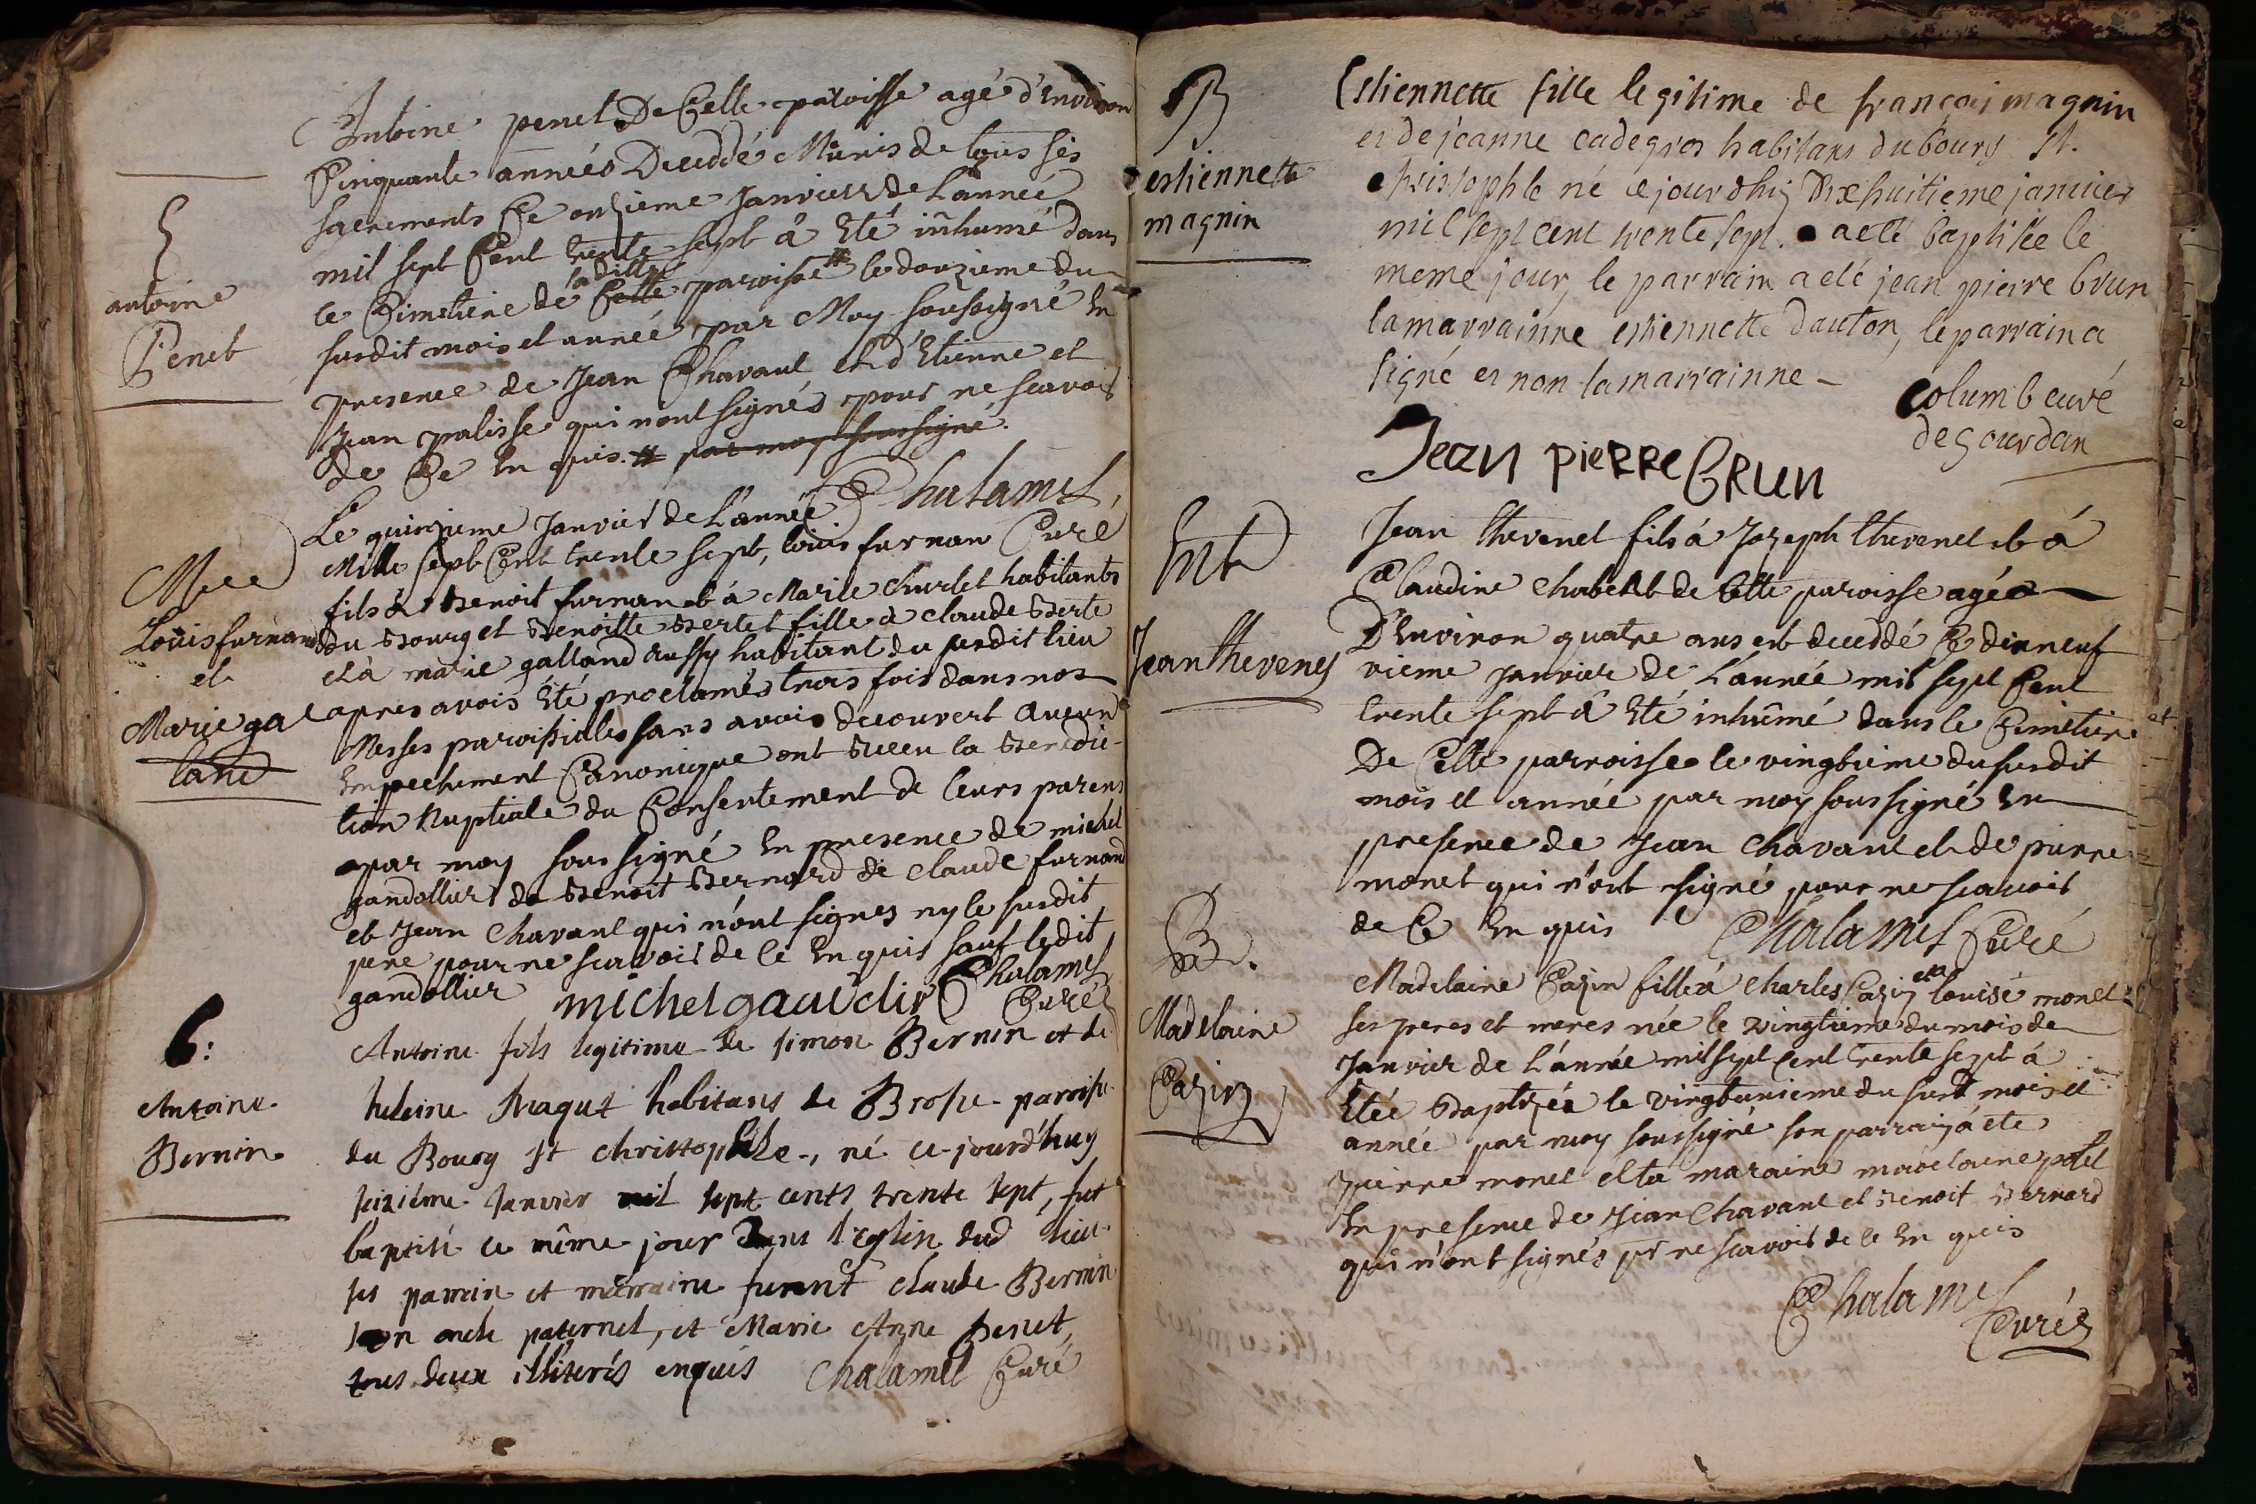 S
antoine
Penet
Antoine penet De Cette paroisse agé d'Environ
Cinquante années Deceddé Munis de tous ses
sacrements Ce onzieme Janvier de L'année
mil sept Cent trente sept â Eté inhumé dans
le Cimetiere de laditte Cette paroisse # le douzieme du
susdit mois et année par Moy soussigné En
presence de Jean Chavant et d'Etienne et
Jean palisse qui n'ont signés pour ne scavoir
de Ce En quis. # par moy soussigné.
Chalamel
Curé
Mge
Louis furnan
et
Marie gal
land
Le quinzieme Janvier de L'année
Mille sept Cent trente sept, louis furnan
fils à Benoit furnan et à Marie Charlet habitants
Du Bourg et Benoitte Bertet fille à Claude Berte
et à marie galland aussy habitant du susdit lieu
apres avoir Eté proclamés trois fois dans nos
Messes paroissiales sans avoir decouvert Aucun
Empechement Canonique ont Reçeu la Benedic-
tion Nuptiale du Consentement de leurs parens
par moy soussigné En presence de michel
gandollier de Benoit Bernard de Claude furnand
et Jean Chavant qui n'ont signes ny le susdit
pere pour ne scavoir de Ce En quis sauf ledit
gandollier michel gaudclir Chalamel
Curé
6:
Antoine
Bernin
Antoine fils legitime de simon Bernin et de
heleine habitans de Brosse paroisse
du Bourg st christophle, né ce jourd'huy
seizième Janvier mil sept cents trente sept, fut
baptisé ce même jour Dans l'Eglise dud lieu
ses parrein et marraine furent claude Bernin
son oncle paternel, et Marie Anne Penet,
tous deux illiterés enquis Chalamel Curé
B
estiennette
magnin
Estiennette fille legitime de françois magnin
et de jeanne cadegros habitans du bourg st.
christophle né ce jourdhuy Dixhuitieme janvier
mil sept cent trente sept. a eté baptisée le
meme jour, le parrain a eté jean pierre brun
la marrainne estiennette dauton, le parrain a
signé et non la marrainne
columb curé
de gourdan
Jean PieRRe BRun
Ent
Jean Thevenet
Jean thevenet fils à Jozeph thevenet et à
Claudine Chabert de Cette paroisse agée
D'Environ quatre ans est deceddé Ce dixneuf
vieme Janvier de L'année mil sept Cent
trente sept â Eté inhûmé dans le Cimetiere
De Cette parroisse le vingtieme du susdit
mois et année par moy soussigné En
presence de Jean Chavant et de pierre
monet qui n'ont signé pour ne scavoir
de Ce En quis Chalamel Curé
B.
Madelaine
Cazin
Madelaine Cazin fille à Charles Cazin et a louise monet
ses peres et meres née le vingtieme du mois de
Janvier de L'année mil sept Cent trente sept á
Etée Baptizée le vingtunieme du susd mois et
année par moy soussigné son parrain â ete
pierre monet et la maraine madelaine petit
En presence de Jean Chavant et Benoit Bernard
qui n'ont signés pr ne scavoir de Ce En quis
Chalamel
Curé